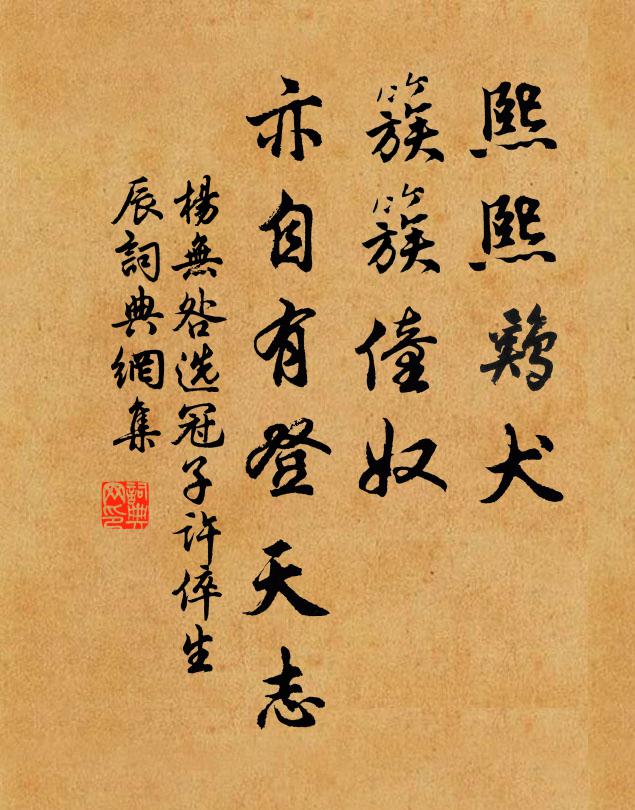 熙熙鷄犬
簇簇僮奴
亦自有登天志
楊無咎选冠子許倅生
辰詞典網集
詞典網印